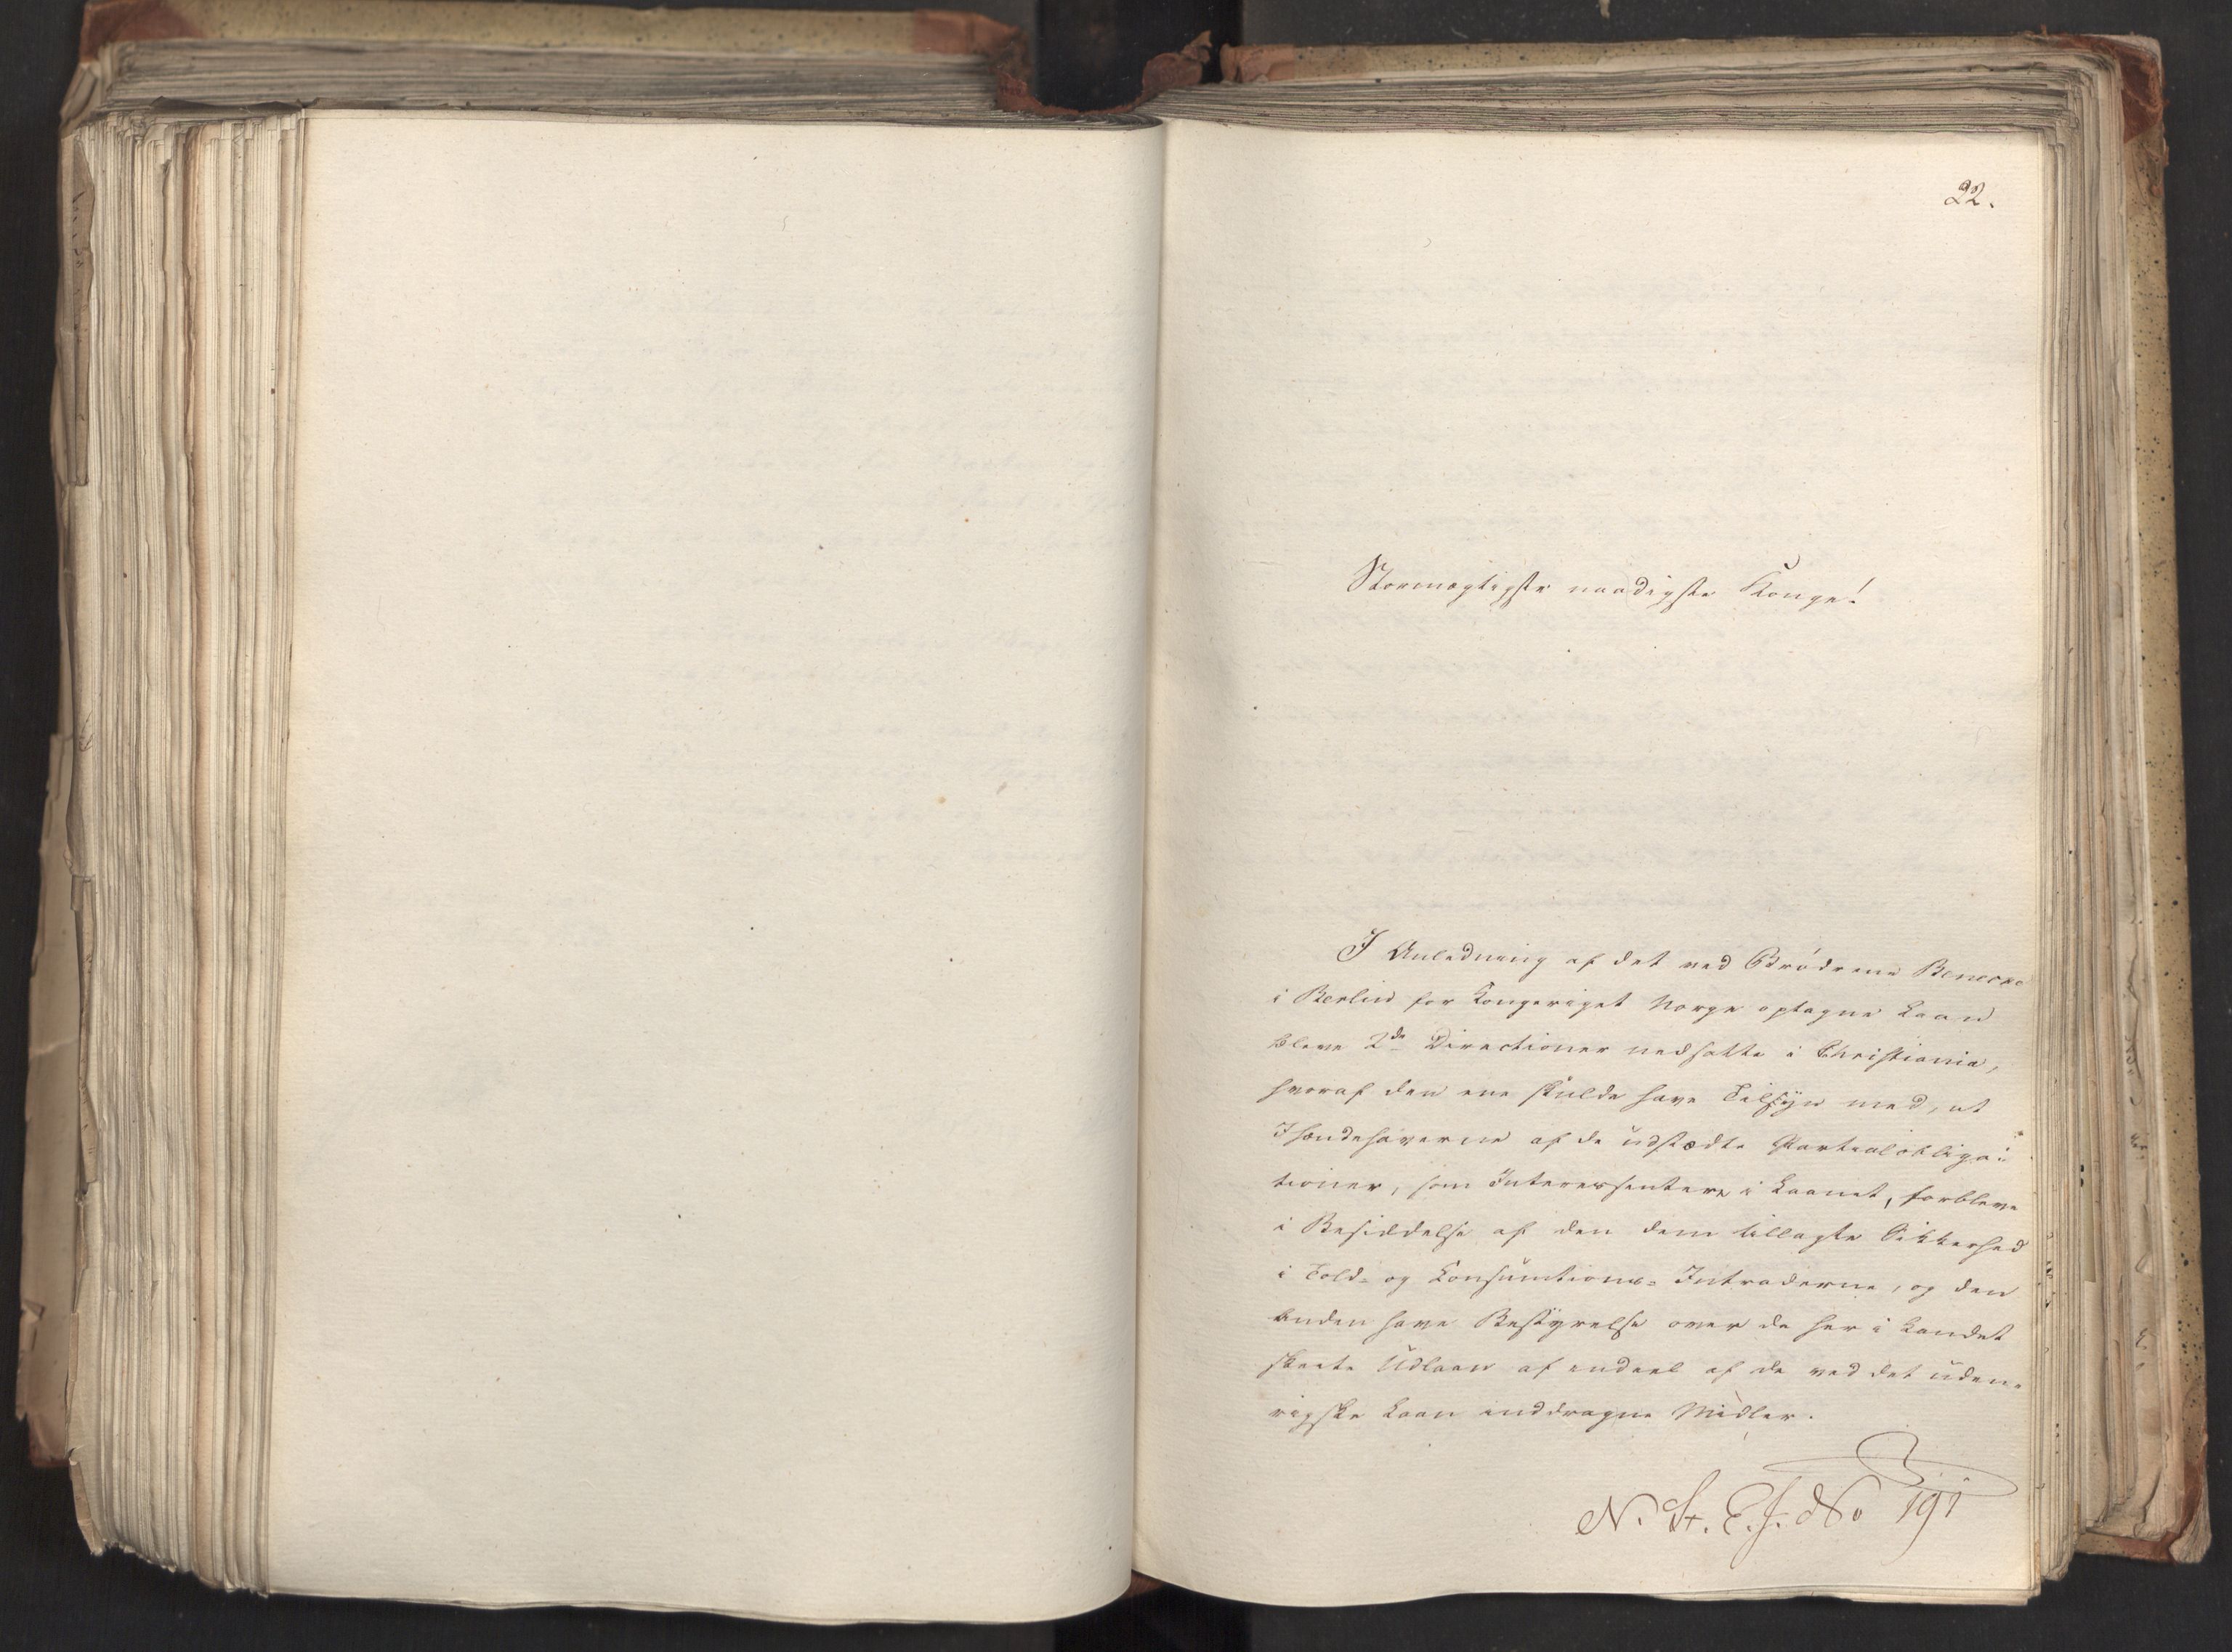 22.
Stormægtigste naadigste Konge!
I Anledning af det ved Brødrene Benecke
i Berlin for Kongeriget Norge optagne Laan
bleve 2de Directioner nedsatte i Christiania,
hvoraf den ene skulde have Tilsyn med, at
Ihændehaverne af de udstædte Partialobliga-
tioner, som Interessentere i Laanet, forbleve
i Besiddelse af den dem tillagte Sikkerhed
i Told- og Consumtions-Intraderne, og den
anden have Bestyrelse over de her i Landet
skeete Udlaan af endeel af de ved det uden-
rigske Laan inddragne Midler.
N. St. E. J. No 191